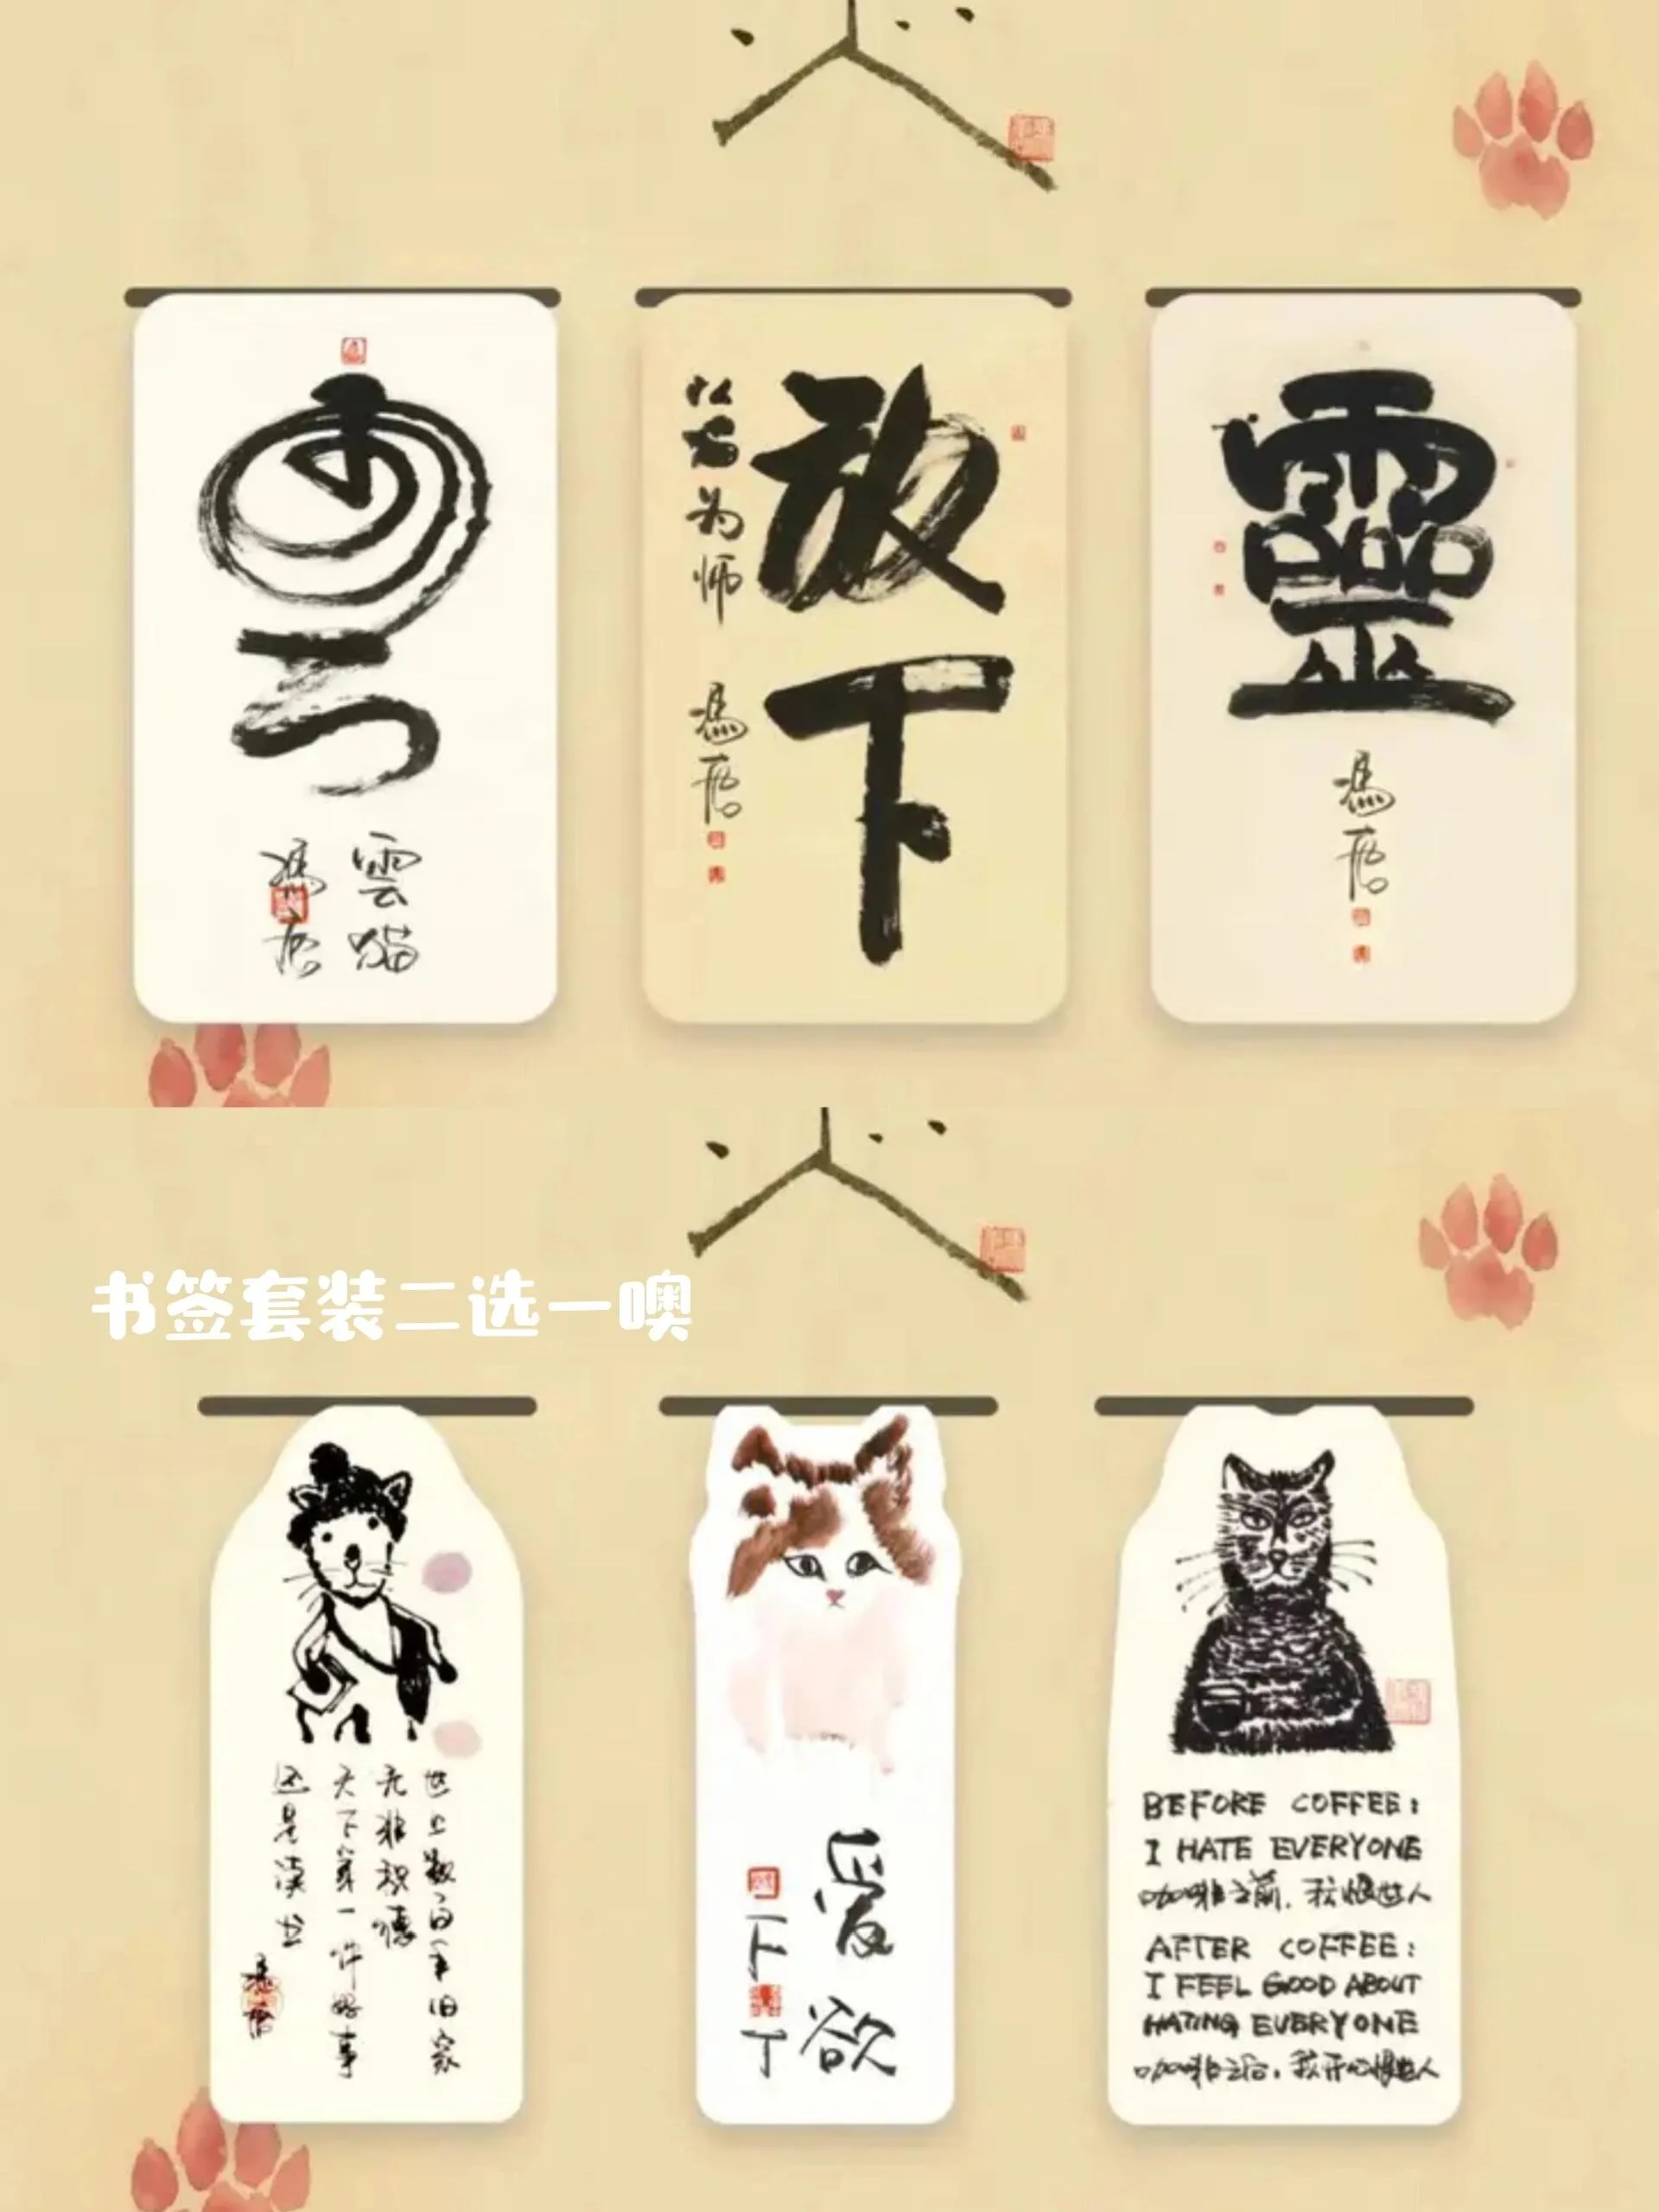 雲猫
馮唐
放下
以猫为师
馮唐
靈
馮唐
书签套装二选一噢
世上数百年旧家
无非积德
天下第一件好事
还是读书
馮唐
爱欲
一下
丁
BEFORE COFFEE:
I HATE EVERYONE
咖啡之前，我恨世人
AFTER COFFEE:
I FEEL GOOD ABOUT
HATING EVERYONE
咖啡之后，我开心恨世人